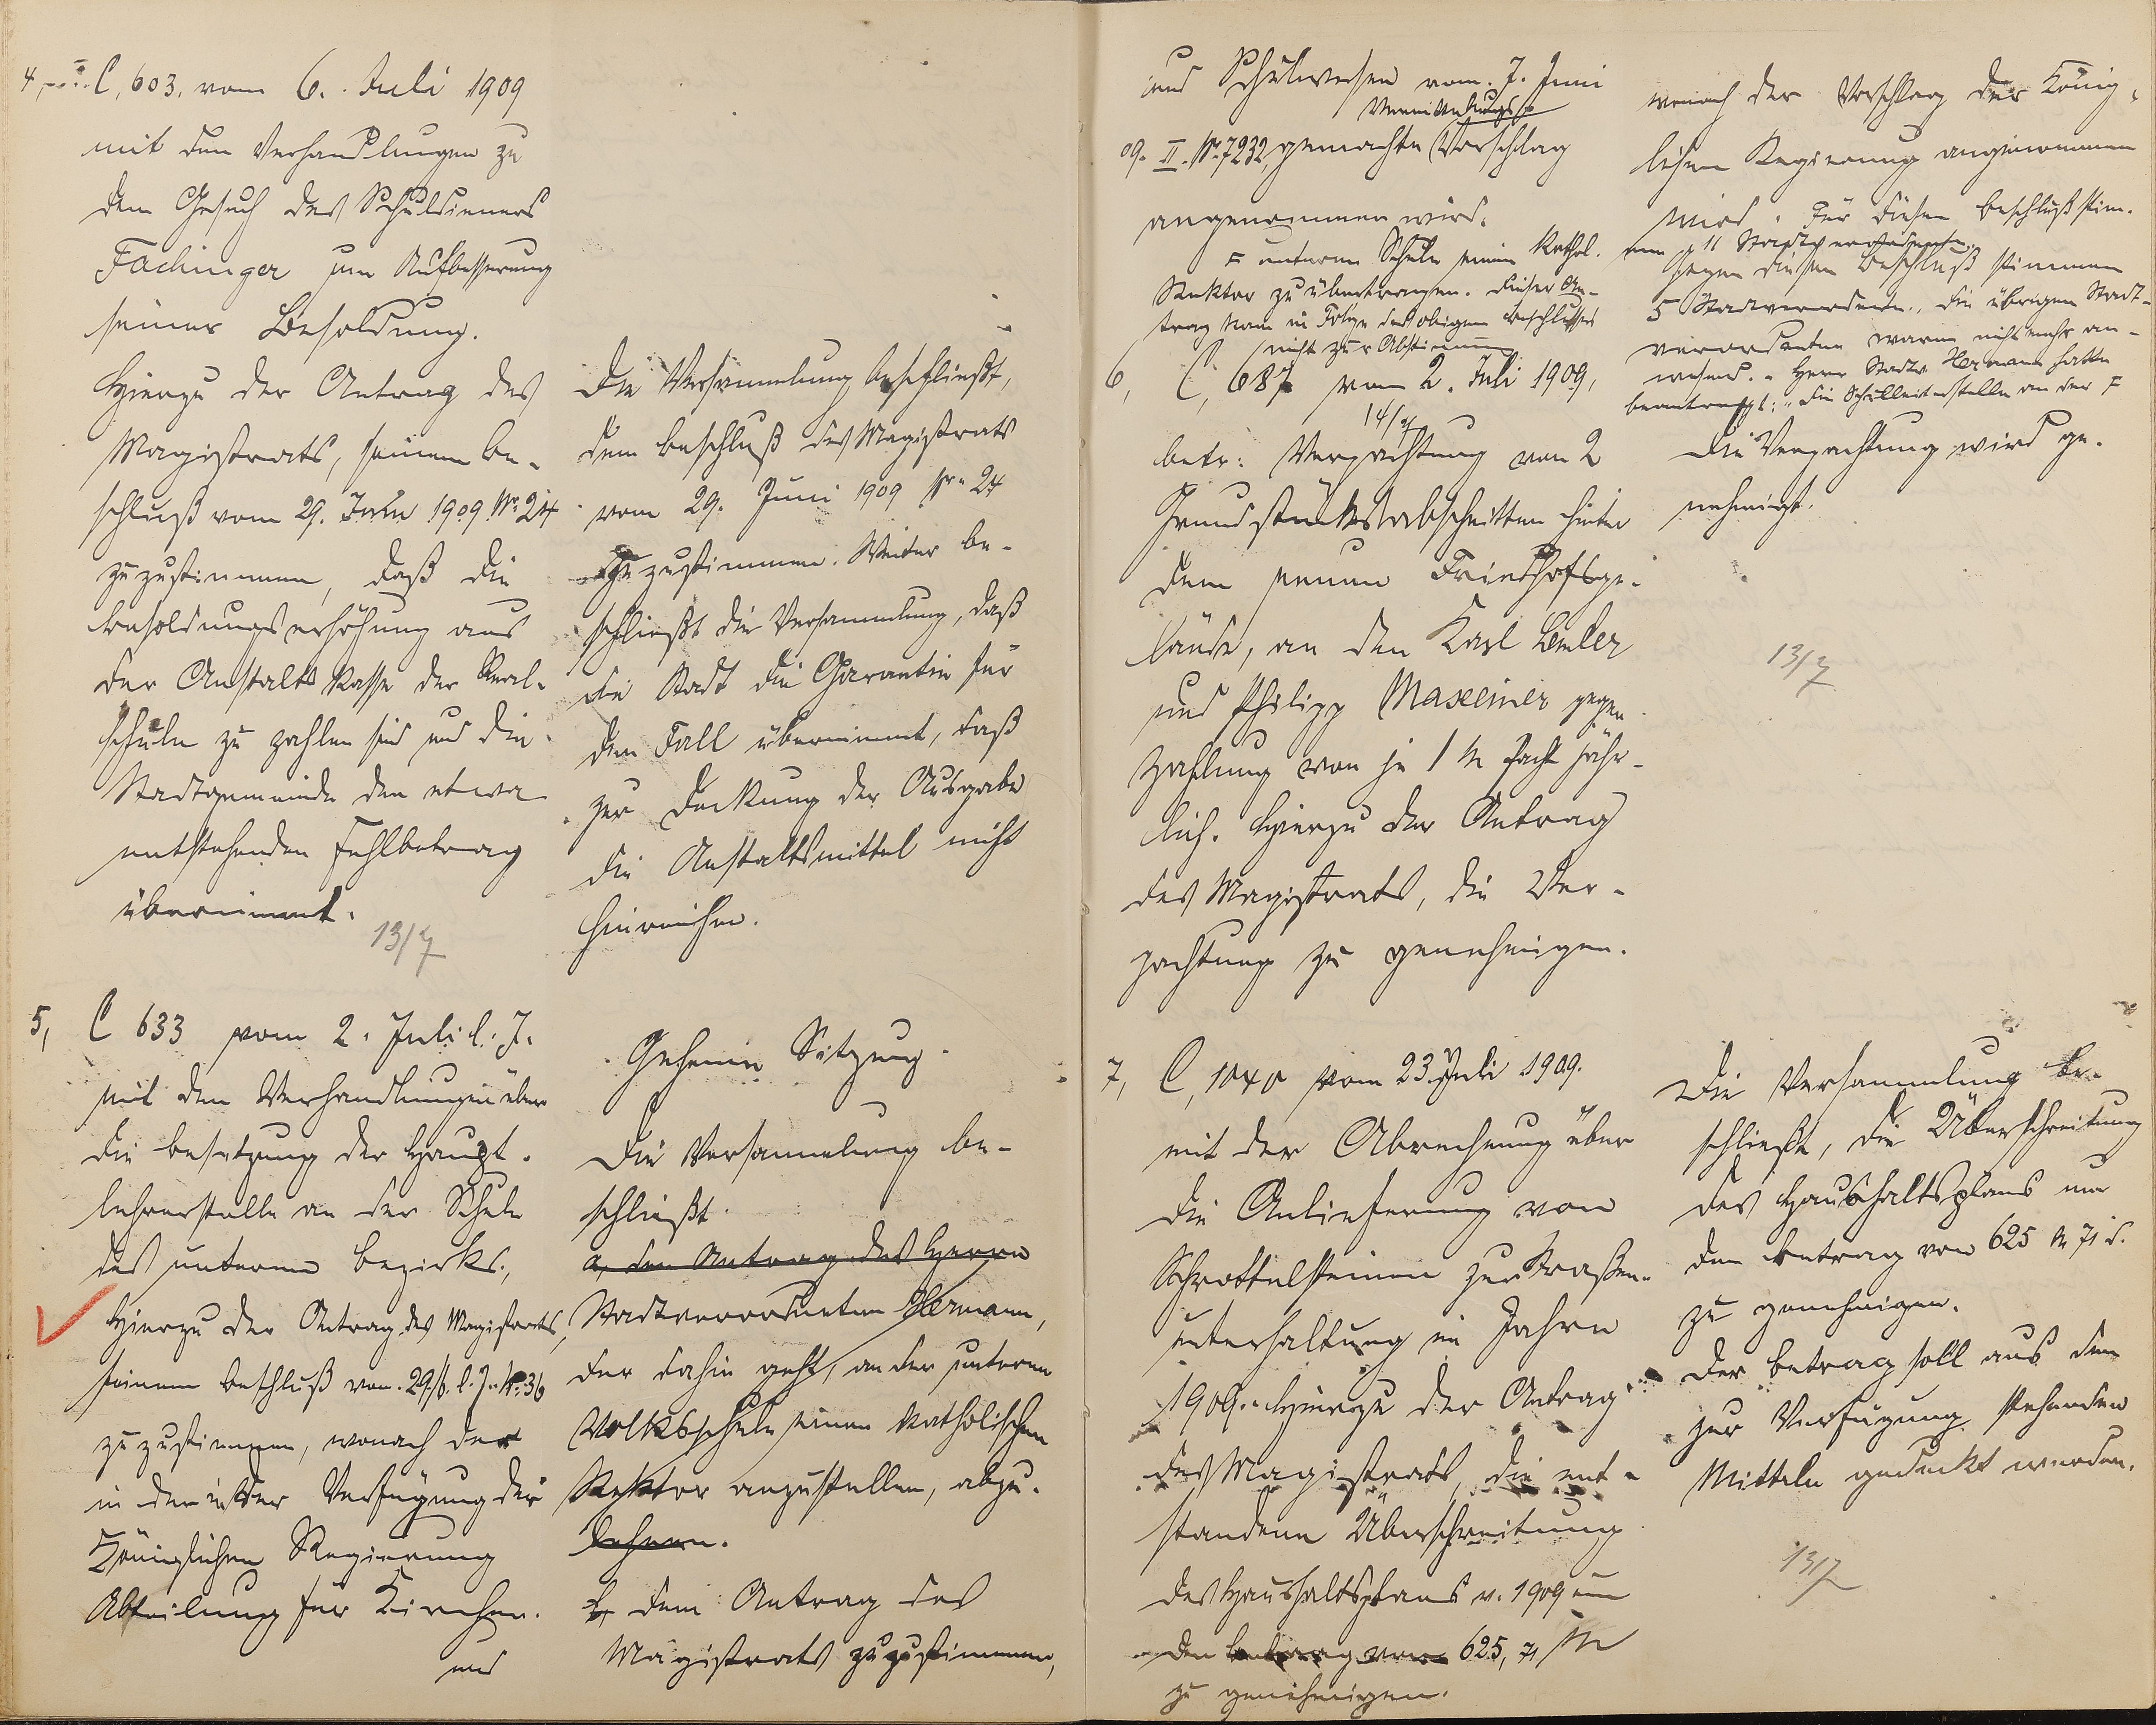 4, C, 603. vom 6. Juli 1909
mit den Verhandlungen zu
dem Gesuch des Schuldieners
Fachinger um Aufbesserung
seiner Besoldung.
Hierzu der Antrag des
Magistrats, seinem Be-
schluß vom 29. Juni 1909 Nr. 24
zuzustimmen, daß die
Besoldungserhöhung aus
der Anstaltskasse der Real-
schule zu zahlen sei und die
Stadtgemeinde den etwa
entstehenden Fehlbetrag
übernimmt.
13/7
Die Versammlung beschließt,
dem Beschluß des Magistrats
vom 29. Juni 1909 Nr. 24
zuzustimmen. Weiter be-
schließt die Versammlung, daß
die Stadt die Garantie für
den Fall übernimmt, daß
zur Deckung der Ausgabe
die Anstaltsmittel nicht
hinreichen.
5, C 633 vom 2. Juli l. J.
mit den Verhandlungen über
die Besetzung der Haupt-
lehrerstelle an der Schule
des unteren Bezirks,
Hierzu der Antrag des Magistrats,
seinem Beschluß vom 29/6. l. J. Nr. 36
zuzustimmen, wonach der
in der Verfügung der
Königlichen Regierung
Abteilung für Kirchen-
und
Geheime Sitzung.
Die Versammlung be-
schließt.
a, den Antrag des Herrn
Stadtverordneten Hermann,
der dahin geht, an der unteren
Volksschule einen katholischen
Rektor anzustellen, abzu-
lehnen.
b, dem Antrag des
Magistrats zuzustimmen,
und Schulwesen vom 7. Juni
Vermittelungs-
09. II. Nr. 7232, gemachte Vorschlag
angenommen wird.
F unteren Schule einem kathol.
Rektor zu übertragen. Dieser An-
trag kam in Folge des obigen Beschlusses
nicht zur Abstimmung
wonach der Vorschlag der König-
lichen Regierung angenommen
wird. Für diesen Beschluß stim-
men 11 Stadtverordnete.
Gegen diesen Beschluß stimmen
5 Stadtverordnete. Die übrigen Stadt-
verordneten waren nicht mehr an-
wesend. Herr Stadtv. Hermann hatte
beantragt: „die Schulleiterstelle an der F
6, C, 687 vom 2. Juli 1909,
14/7
betr: Verpachtung von 2
Grundstücksabschnitten hinter
dem neuen Friedhofsge-
lände, an den Karl Beuler
und Philipp Maxeiner gegen
Zahlung von je 1 M Pacht jähr-
lich. Hierzu der Antrag
des Magistrats, die Ver-
pachtung zu genehmigen.
Die Verpachtung wird ge-
nehmigt.
13/7
7, C, 1040 vom 23. Juli 1909.
mit der Abrechnung über
die Anlieferung von
Schrottelsteinen zur Straßen-
unterhaltung im Jahre
1909. Hierzu der Antrag
des Magistrats, die ent-
standene Überschreitung
des Haushaltsplans v. 1909 um
den Betrag von 625,71 M
zu genehmigen.
Die Versammlung be-
schließt, die Überschreitung
des Haushaltsplans um
den Betrag von 625 M 71 d.
zu genehmigen.
Der Betrag soll aus dem
zur Verfügung stehenden
Mitteln gedeckt werden.
13/7